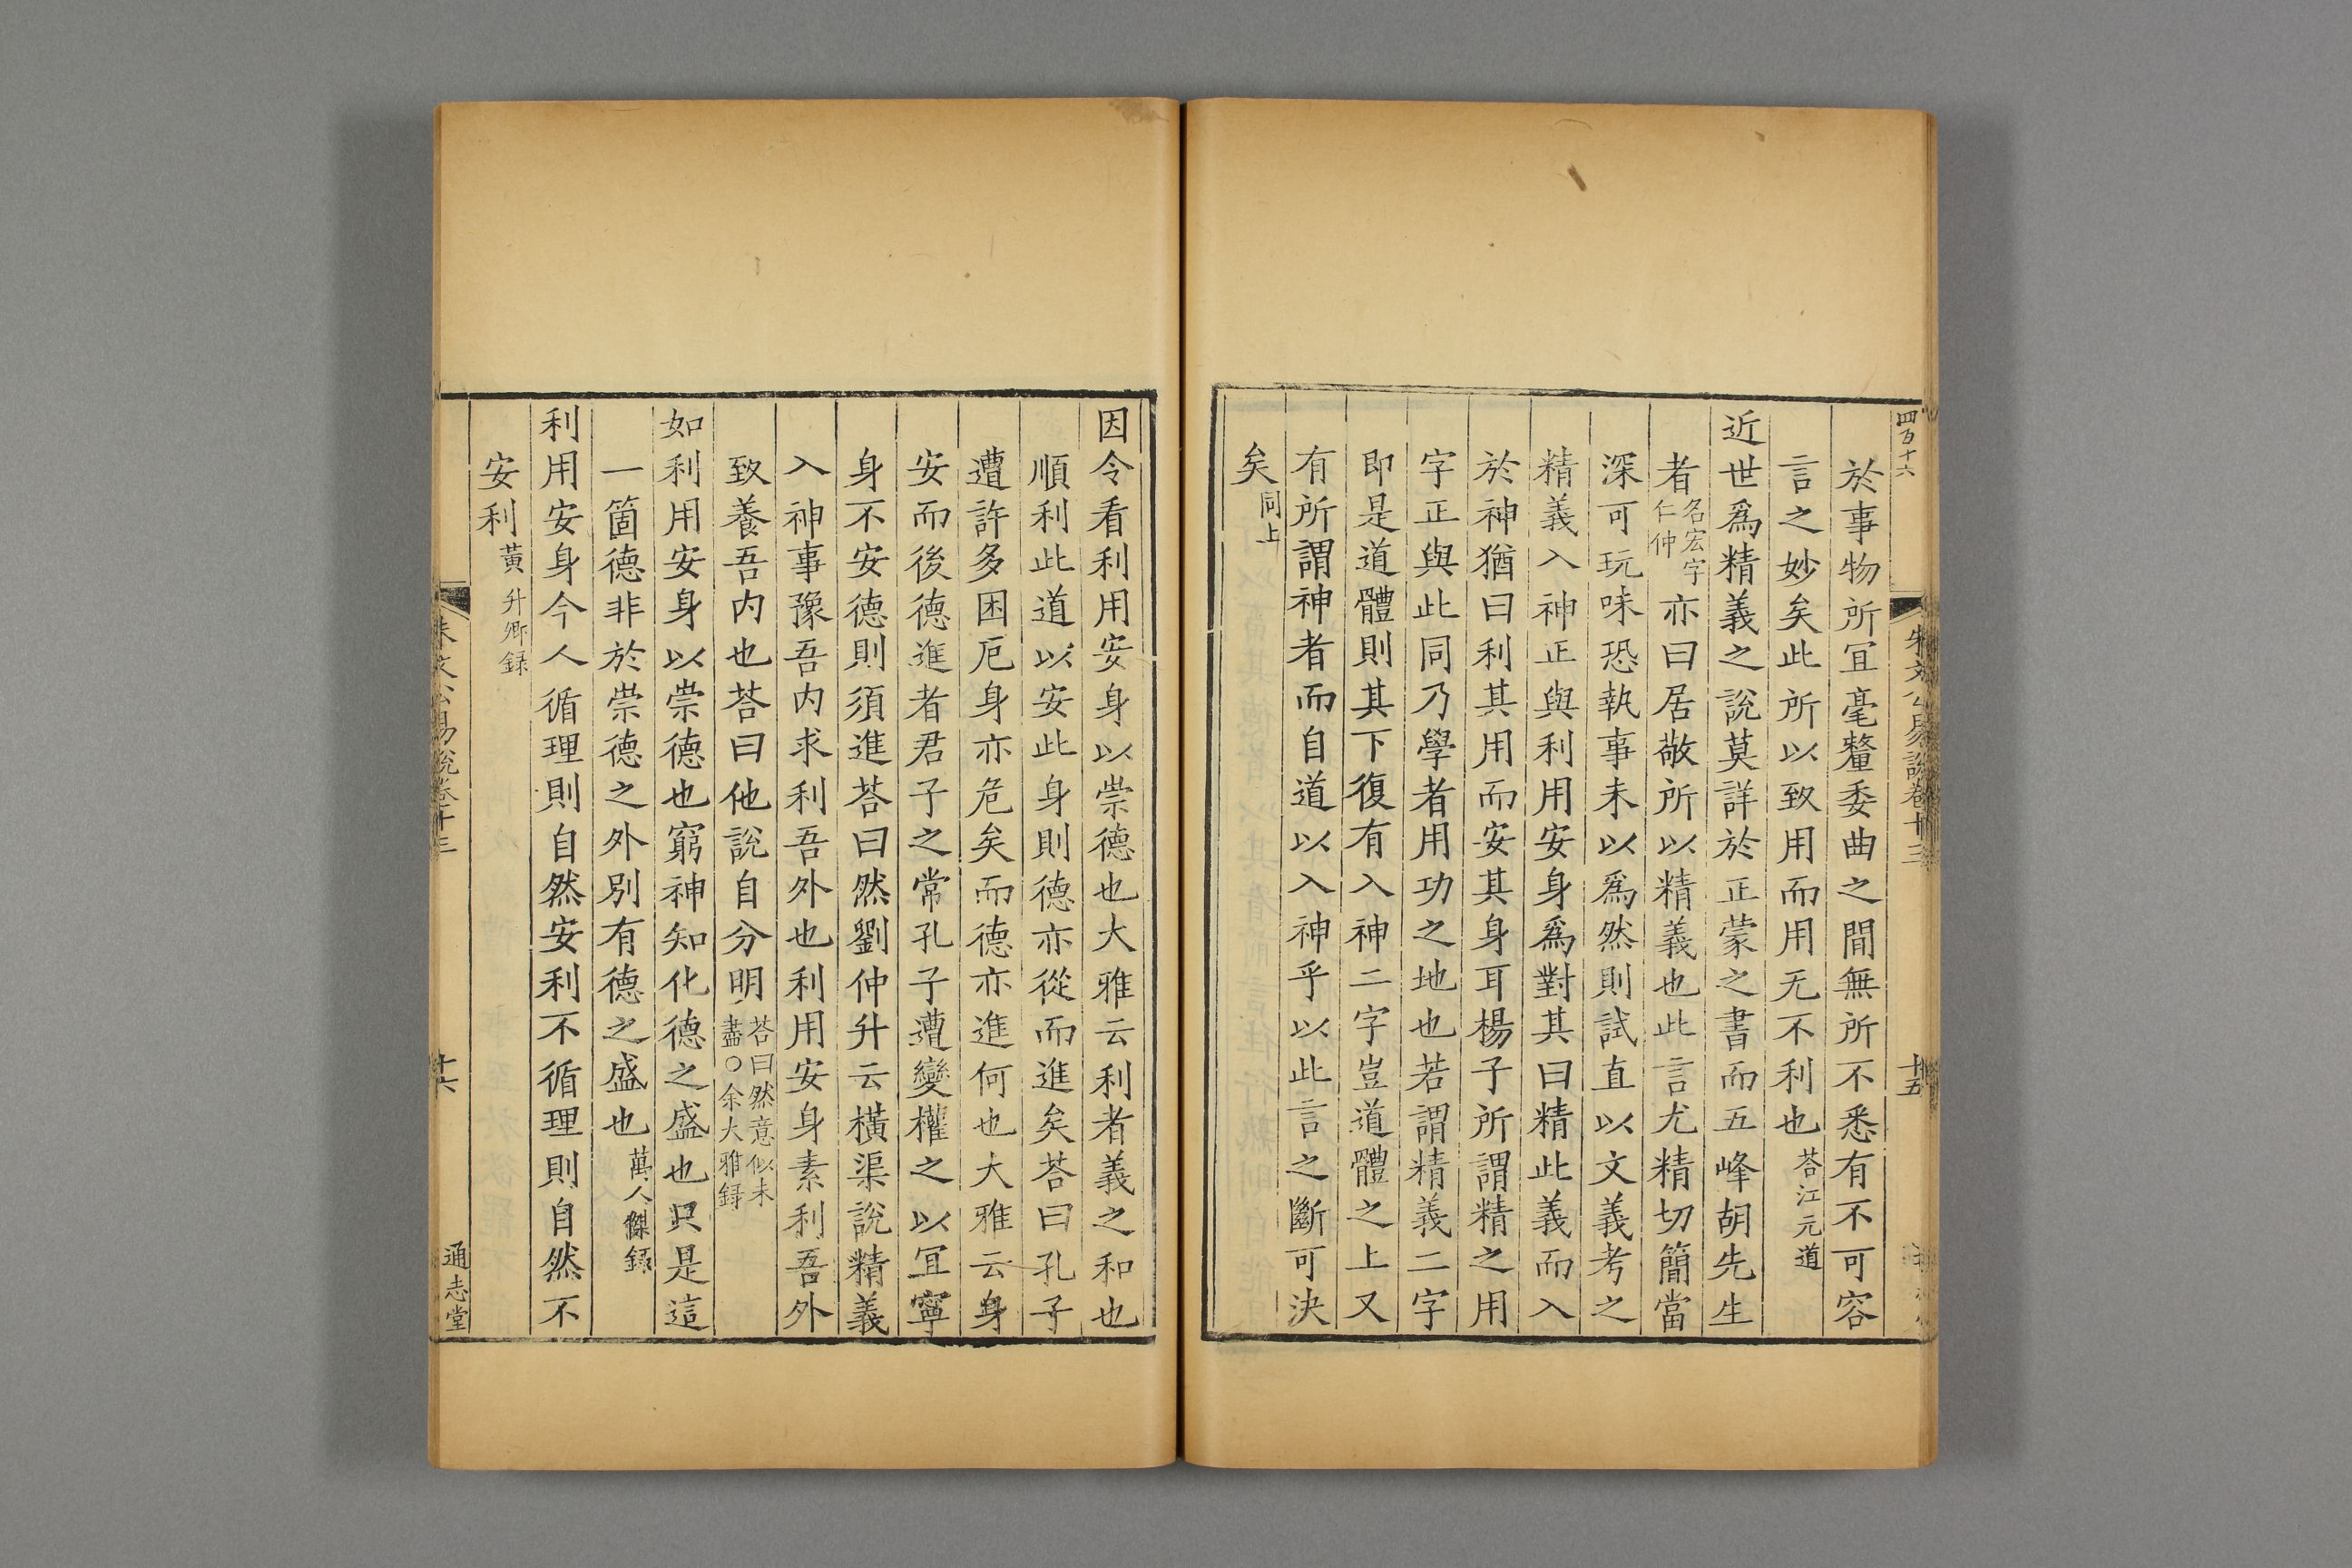 四百十六
朱文公易說卷十三
十五
於事物所宜毫釐委曲之間無所不悉有不可容
言之妙矣此所以致用而用无不利也荅江元道
近世爲精義之說莫詳於正蒙之書而五峰胡先生
者名宏字仁仲亦曰居敬所以精義也此言尤精切簡當
深可玩味恐執事未以爲然則試直以文義考之
精義入神正與利用安身爲對其曰精此義而入
於神猶曰利其用而安其身耳楊子所謂精之用
字正與此同乃學者用功之地也若謂精義二字
即是道體則其下復有入神二字豈道體之上又
有所謂神者而自道以入神乎以此言之斷可決
矣同上
因令看利用安身以崇德也大雅云利者義之和也
順利此道以安此身則德亦從而進矣荅曰孔子
遭許多困厄身亦危矣而德亦進何也大雅云身
安而後德進者君子之常孔子遭變權之以宜寧
身不安德則須進荅曰然劉仲升云橫渠說精義
入神事豫吾内求利吾外也利用安身素利吾外
致養吾内也荅曰他說自分明荅曰然意似未盡○余大雅録
如利用安身以崇德也窮神知化德之盛也只是這
一箇德非於崇德之外別有德之盛也萬人傑録
利用安身今人循理則自然安利不循理則自然不
安利黃升卿録
朱文公易說卷十三
十六
通志堂